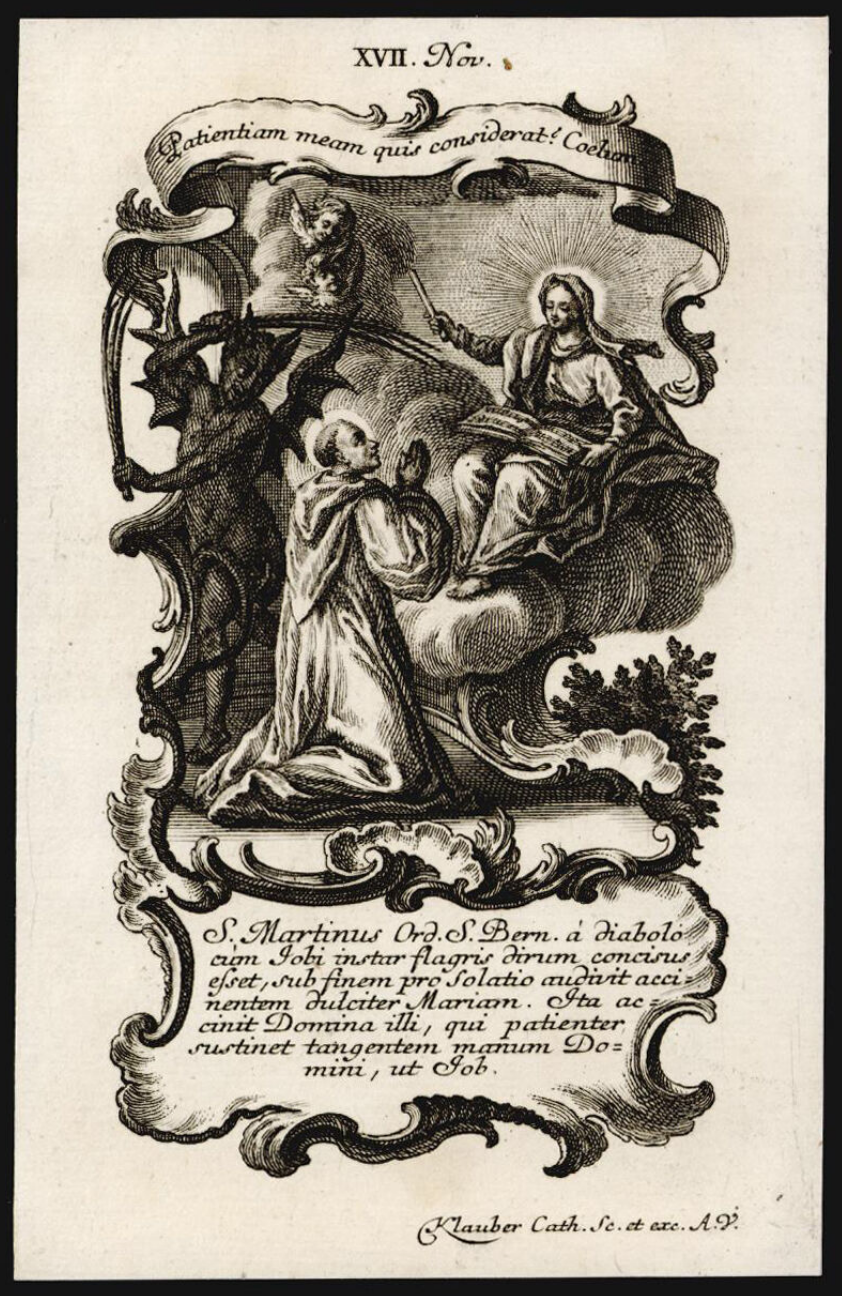 XVII. Nov.
Patientiam meam quis considerat? Coelum
S. Martinus Ord. S. Bern. à diabolo
cùm Jobi instar flagris dirum concisus
eſset, sub finem pro Solatio audivit acci=
nentem dulciter Mariam. Ita ac=
cinit Domina illi, qui patienter
sustinet tangentem manum Do=
mini, ut Job.
Klauber Cath. Sc. et exc. A.V.